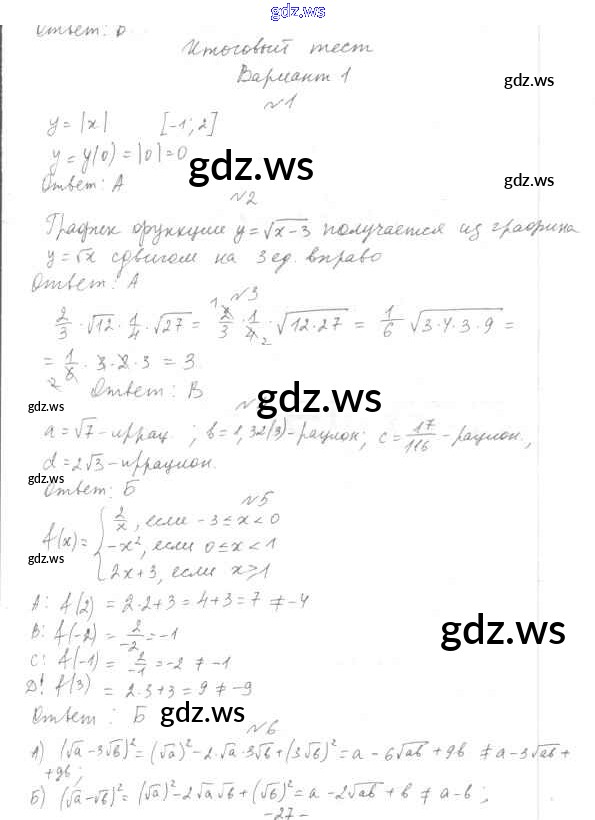 gdz.ws
Ответ: 0
Итоговый тест
Вариант 1
gdz.ws
№1
y = |x| [-1; 2]
y = y(0) = |0| = 0
gdz.ws
Ответ: А
gdz.ws
№2
График функции y = √(x-3) получается из графика
y = √x сдвигом на 3 ед. вправо
Ответ: А
№3
2/3 · √12 · 1/4 · √27 = 2/3 · 1/4 · √(12·27) = 1/6 √(3·4·3·9) =
= 1/6 · 3 · 2 · 3 = 3
Ответ: В
gdz.ws
gdz.ws
gdz.ws
№
a = √7 - иррац.; b = 1,32(3) - рацион; c = 17/116 - рацион.,
d = 2√3 - иррацион.
gdz.ws
Ответ: Б
№5
f(x) = { 2/x, если -3 ≤ x < 0
-x², если 0 ≤ x < 1
2x+3, если x ≥ 1
gdz.ws
gdz.ws
А: f(2) = 2·2+3 = 4+3 = 7 ≠ -4
В: f(-2) = 2/-2 = -1
gdz.ws
С: f(-1) = 2/-1 = -2 ≠ -1
D: f(3) = 2·3+3 = 9 ≠ -9
Ответ: Б
gdz.ws
№6
А) (√a - 3√b)² = (√a)² - 2·√a·3√b + (3√b)² = a - 6√ab + 9b ≠ a - 3√ab +
+9b;
Б) (√a - √b)² = (√a)² - 2√a√b + (√b)² = a - 2√ab + b ≠ a - b;
-27-